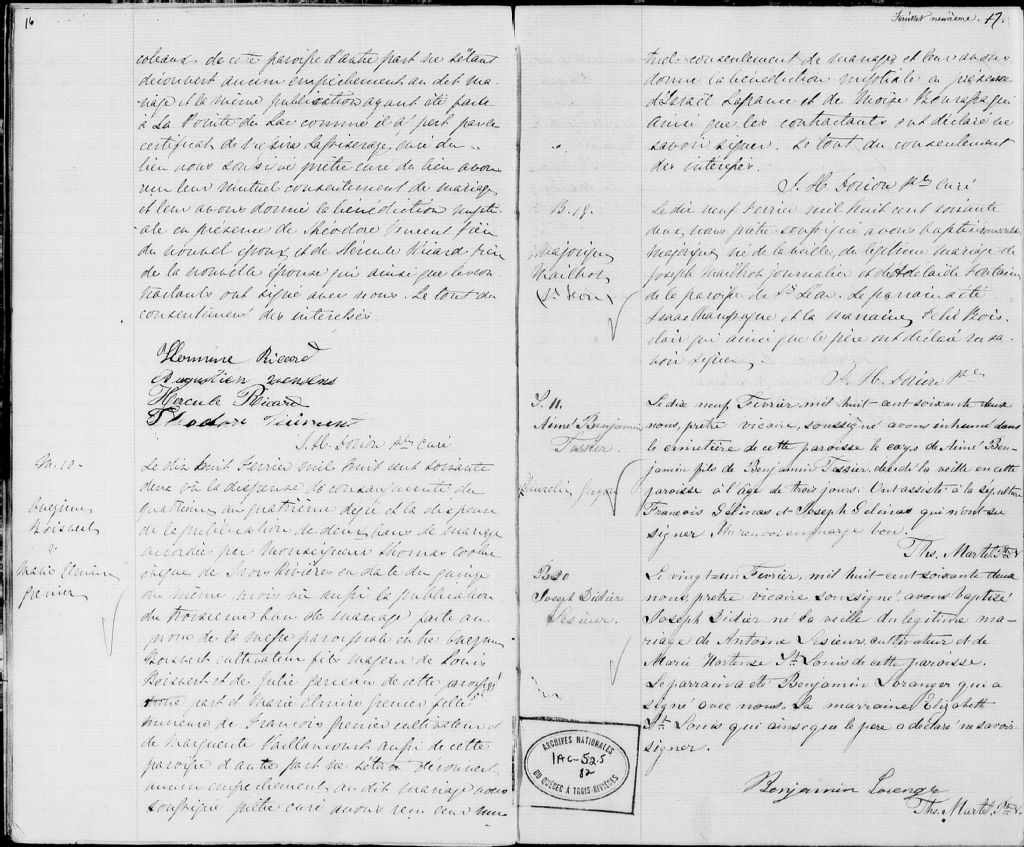 16
coleaux de cette paroisse d'autre part ne s'étant
découvert aucun empêchement au dit ma-
riage et la même publication ayant été faite
à La Pointe du Lac comme il appert par le
certificat de Messire curé du
lieu nous soussigné prêtre curé du lieu avons
reçu leur mutuel consentement de mariage
et leur avons donné la bénédiction nupti-
ale en présence de Théodore Vincent
du nouvel époux et de Hercule Ricard
de la nouvelle épouse qui ainsi que les con
tractants ont signé avec nous. Le tout du
consentement des intéressés.
Hermine Ricard
Hercule Ricard
Théodore Vincent
J. H. Dorion Ptre Curé
M. 10.
Onezime
Boisvert
&
Marie Elmire
Grenier
Le dix huit Fevrier mil huit cent soixante
deux vu la dispense de consanguinité du
quatrieme au quatrième degré et la dispense
de la publication de deux bans de mariage
accordée par Monseigneur Thomas Cooke
évêque de Trois Rivières en date du quinze
du même mois vu aussi la publication
du troisieme ban de mariage faite au
prone de la messe paroissiale entre Onezime
Boisvert cultivateur fils majeur de Louis
Boisvert et de Julie Garceau de cette paroisse
part et Marie Elmire Grenier fille
mineure de François Grenier cultivateur et
de Marguerite Vaillancourt aussi de cette
paroisse d'autre part ne s'étant découvert
aucun empêchement au dit mariage nous
soussigné prêtre curé avons reçu leur mu-
Feuillet neuvième. 17.
tuel consentement de mariage et leur avons
donné la bénédiction nuptiale en présence
d'Israël Lafrance et de Moise Bourassa qui
ainsi que les contractants ont déclaré ne
savoir signer. Le tout du consentement
des intéressés.
J. H. Dorion Ptre Curé
B. 19.
Majorique
Mailhot
(St Léon)
Le dix neuf Fevrier mil huit cent soixante
deux, nous prêtre soussigné avons baptisé
Majorique né de la veille, du légitime mariage de
Joseph Mailhot journalier et d'Adelaide Fontaine
de la paroisse de St Léon. Le parrain a été
Isaac Champagne et la marraine Bois
clair qui ainsi que le père ont déclaré ne sa
voir signer.
J. H. Dorion Ptre
S. 11.
Aimé Benjamin
Tessier.
Le dix neuf Fevrier, mil huit-cent soixante deux
nous, prêtre vicaire, soussigné avons inhumé dans
le cimetière de cette paroisse le corps de Aimé Ben-
jamin fils de Benjamin Tessier, décédé la veille en cette
paroisse à l'âge de trois jours. Ont assisté à la sépulture
François Gelinas et Joseph Gelinas qui n'ont su
signer en marge bon.
Ths. Martel Ptre V.
B20
Joseph Didier
Lesieur.
Le vingt un Fevrier, mil huit-cent soixante deux
nous prêtre vicaire soussigné, avons baptisé
Joseph Didier né la veille du légitime ma-
riage de Antoine Lesieur cultivateur et de
Marie Hortense St. Louis de cette paroisse.
Le parrain a été Benjamin Loranger qui a
signé avec nous. La marraine Elizabeth
St. Louis qui ainsi que le père a déclaré ne savoir
signer.
Benjamin Loranger
Ths. Martel, Ptre V.
ARCHIVES NATIONALES
1AC-52.5
82
DU QUÉBEC À TROIS-RIVIÈRES